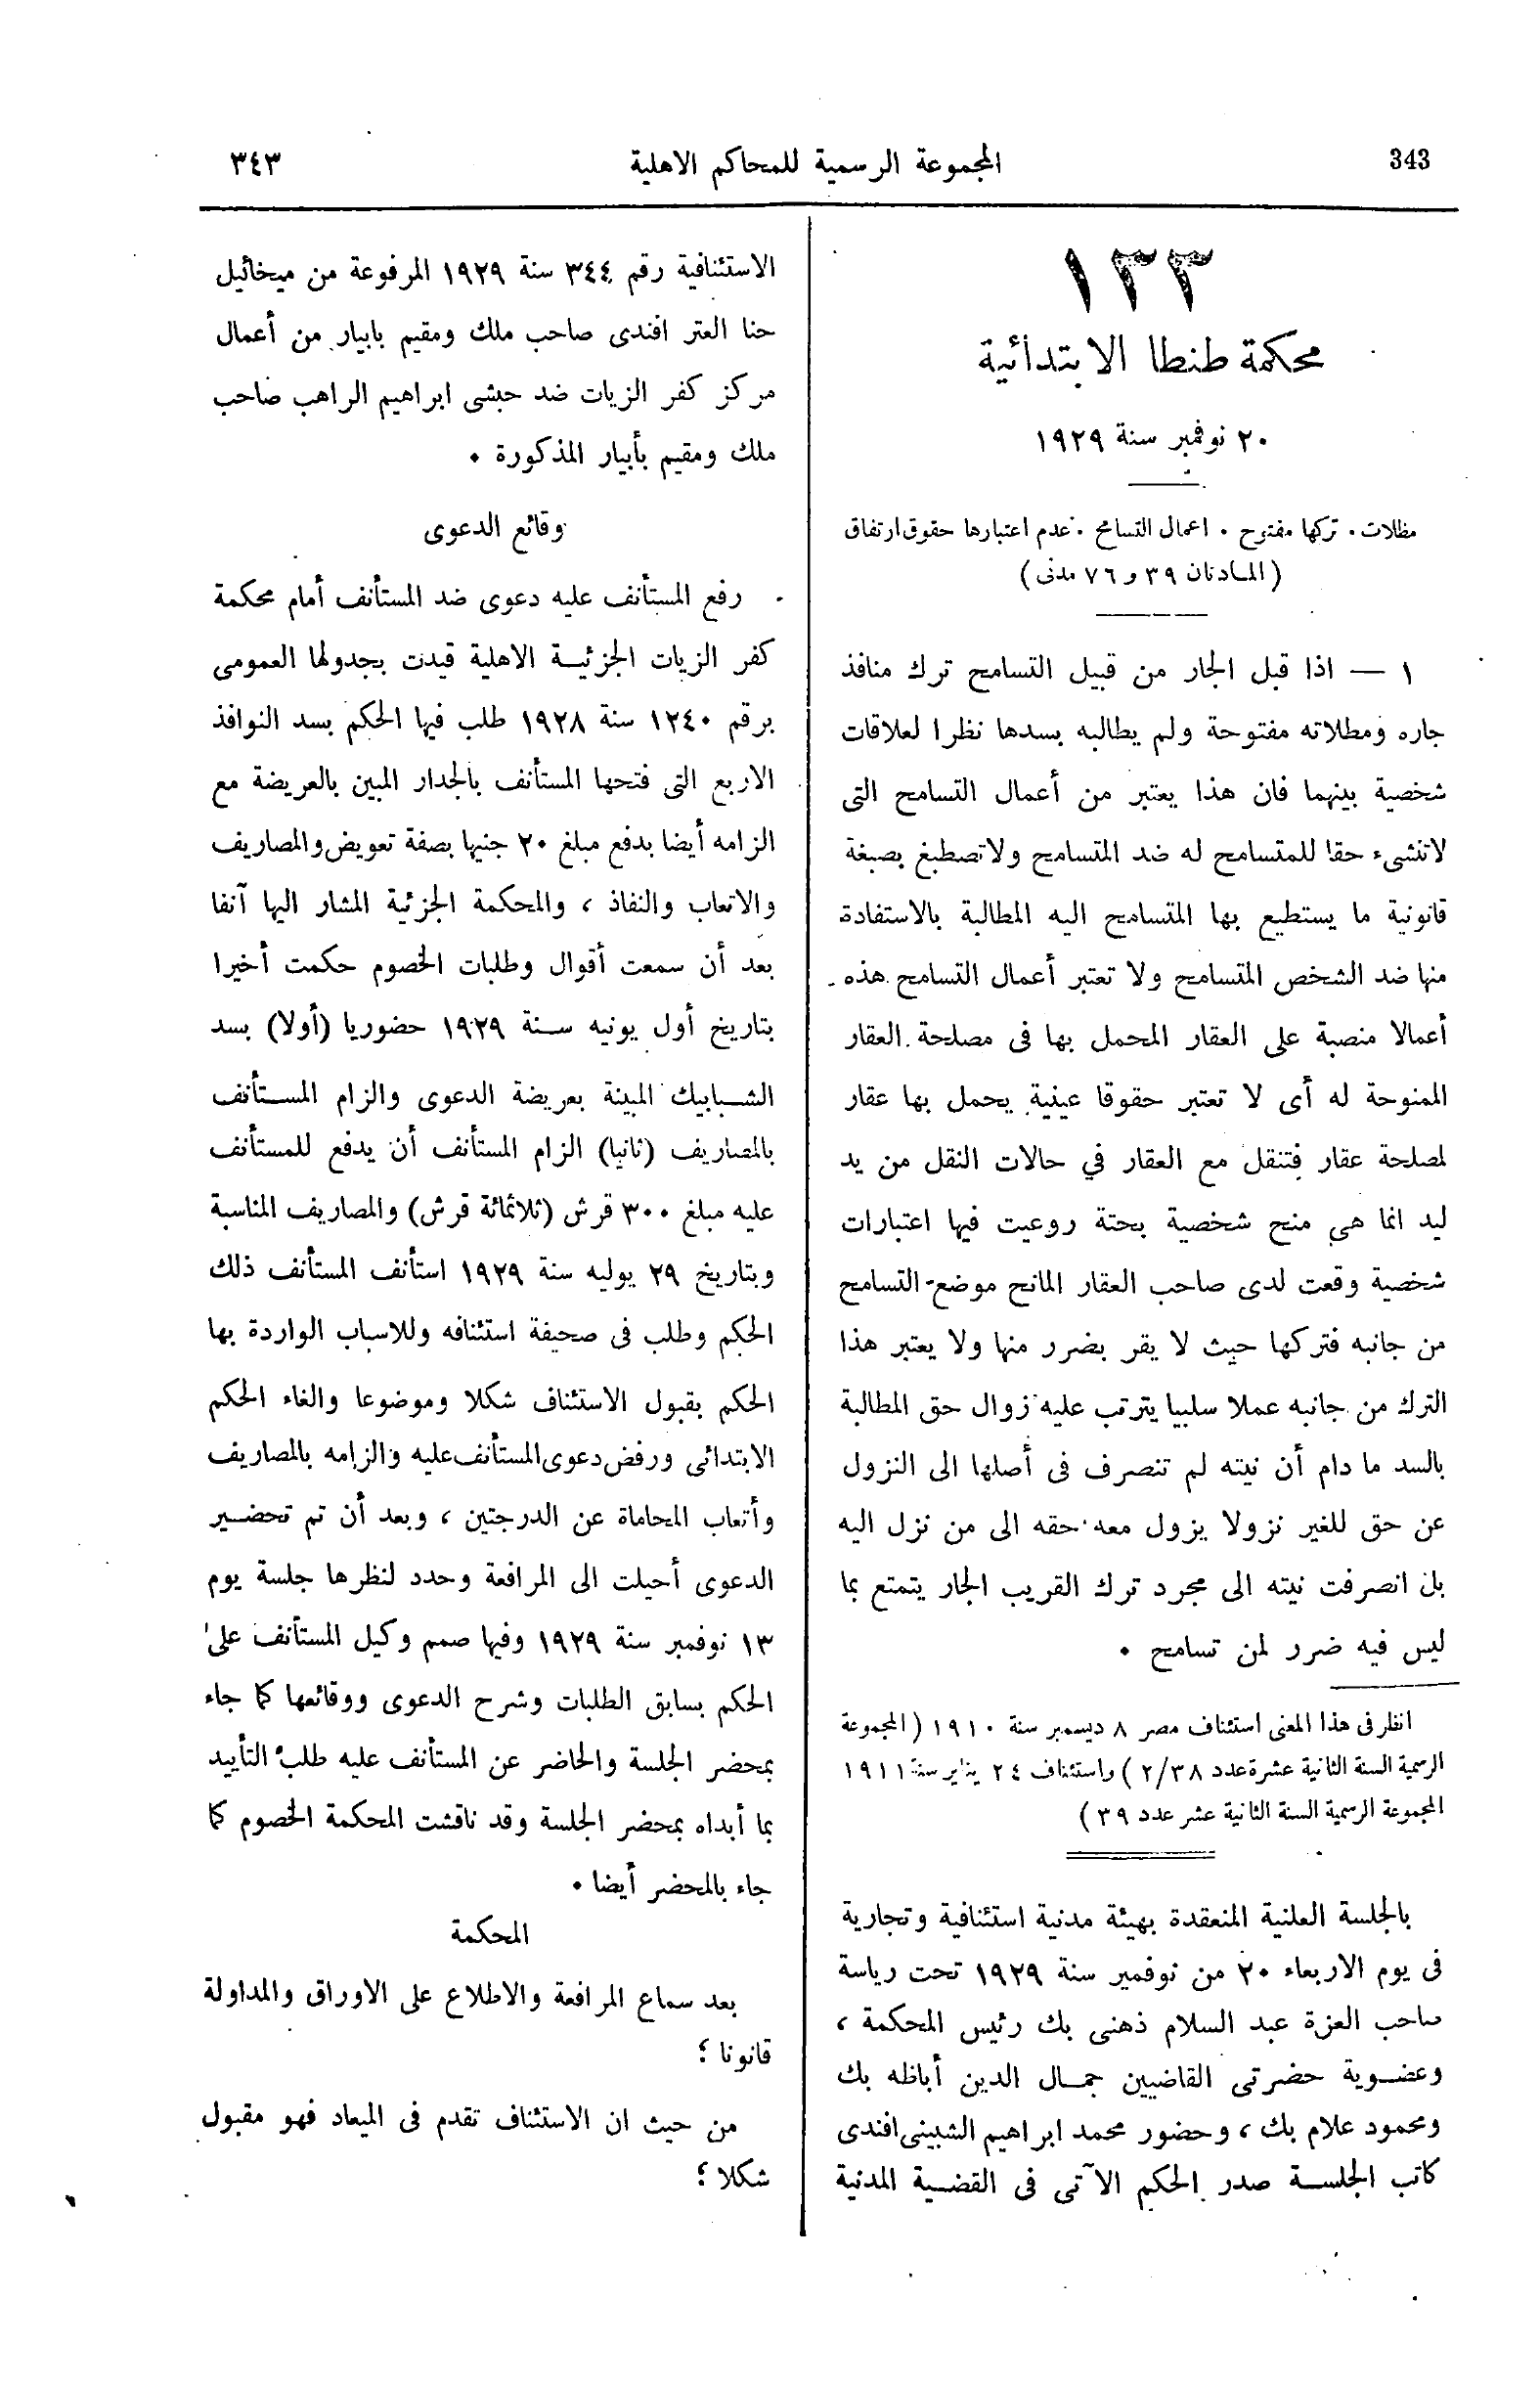 343
المجموعة الرسمية للمحاكم الاهلية
٣٤٣
١٣٣
محكمة طنطا الابتدائية
٢٠ نوفمبر سنة ١٩٢٩
مظلات . تركها مفتوح . اعمال التسامح . عدم اعتبارها حقوق ارتفاق
( المادتان ٣٩ و ٧٦ مدنى )
١ — اذا قبل الجار من قبيل التسامح ترك منافذ
جاره ومطلاته مفتوحة ولم يطالبه بسدها نظرا لعلاقات
شخصية بينهما فان هذا يعتبر من أعمال التسامح التى
لاتنشىء حقا للمتسامح له ضد المتسامح ولا تصطبغ بصبغة
قانونية ما يستطيع بها المتسامح اليه المطالبة بالاستفادة
منها ضد الشخص المتسامح ولا تعتبر أعمال التسامح هذه
أعمالا منصبة على العقار المحمل بها فى مصلحة العقار
الممنوحة له أى لا تعتبر حقوقا عينية يحمل بها عقار
لمصلحة عقار فتنقل مع العقار في حالات النقل من يد
ليد انما هي منح شخصية بحتة روعيت فيها اعتبارات
شخصية وقعت لدى صاحب العقار المانح موضع التسامح
من جانبه فتركها حيث لا يقر بضرر منها ولا يعتبر هذا
الترك من جانبه عملا سلبيا يترتب عليه زوال حق المطالبة
بالسد ما دام أن نيته لم تنصرف فى أصلها الى النزول
عن حق للغير نزولا يزول معه حقه الى من نزل اليه
بل انصرفت نيته الى مجرد ترك القريب الجار يتمتع بما
ليس فيه ضرر لمن تسامح .
انظر فى هذا المعنى استئناف مصر ٨ ديسمبر سنة ١٩١٠ ( المجموعة
الرسمية السنة الثانية عشرة عدد ٢/٣٨ ) واستئناف ٢٤ يناير سنة ١٩١١
المجموعة الرسمية السنة الثانية عشر عدد ٣٩ )
بالجلسة العلنية المنعقدة بهيئة مدنية استئنافية وتجارية
فى يوم الاربعاء ٢٠ من نوفمبر سنة ١٩٢٩ تحت رياسة
صاحب العزة عبد السلام ذهنى بك رئيس المحكمة ،
وعضوية حضرتى القاضيين جمال الدين أباظه بك
ومحمود علام بك ، وحضور محمد ابراهيم الشبينى افندى
كاتب الجلسة صدر الحكم الآتى فى القضية المدنية
الاستئنافية رقم ٣٤٤ سنة ١٩٢٩ المرفوعة من ميخائيل
حنا العتر افندى صاحب ملك ومقيم بابيار من أعمال
مركز كفر الزيات ضد حبشى ابراهيم الراهب صاحب
ملك ومقيم بأبيار المذكورة .
وقائع الدعوى
رفع المستأنف عليه دعوى ضد المستأنف أمام محكمة
كفر الزيات الجزئية الاهلية قيدت بجدولها العمومى
برقم ١٢٤٠ سنة ١٩٢٨ طلب فيها الحكم بسد النوافذ
الاربع التى فتحها المستأنف بالجدار المبين بالعريضة مع
الزامه أيضا بدفع مبلغ ٢٠ جنيها بصفة تعويض والمصاريف
والاتعاب والنفاذ ، والمحكمة الجزئية المشار اليها آنفا
بعد أن سمعت أقوال وطلبات الخصوم حكمت أخيرا
بتاريخ أول يونيه سنة ١٩٢٩ حضوريا (أولا) بسد
الشبابيك المبينة بعريضة الدعوى والزام المستأنف
بالمصاريف (ثانيا) الزام المستأنف أن يدفع للمستأنف
عليه مبلغ ٣٠٠ قرش (ثلاثمائة قرش) والمصاريف المناسبة
وبتاريخ ٢٩ يوليه سنة ١٩٢٩ استأنف المستأنف ذلك
الحكم وطلب فى صحيفة استئنافه وللاسباب الواردة بها
الحكم بقبول الاستئناف شكلا وموضوعا والغاء الحكم
الابتدائى ورفض دعوى المستأنف عليه والزامه بالمصاريف
وأتعاب المحاماة عن الدرجتين ، وبعد أن تم تحضير
الدعوى أحيلت الى المرافعة وحدد لنظرها جلسة يوم
١٣ نوفمبر سنة ١٩٢٩ وفيها صمم وكيل المستأنف على
الحكم بسابق الطلبات وشرح الدعوى ووقائعها كما جاء
بمحضر الجلسة والحاضر عن المستأنف عليه طلب التأييد
بما أبداه بمحضر الجلسة وقد ناقشت المحكمة الخصوم كما
جاء بالمحضر أيضا .
المحكمة
بعد سماع المرافعة والاطلاع على الاوراق والمداولة
قانونا ؛
من حيث ان الاستئناف تقدم فى الميعاد فهو مقبول
شكلا ؛